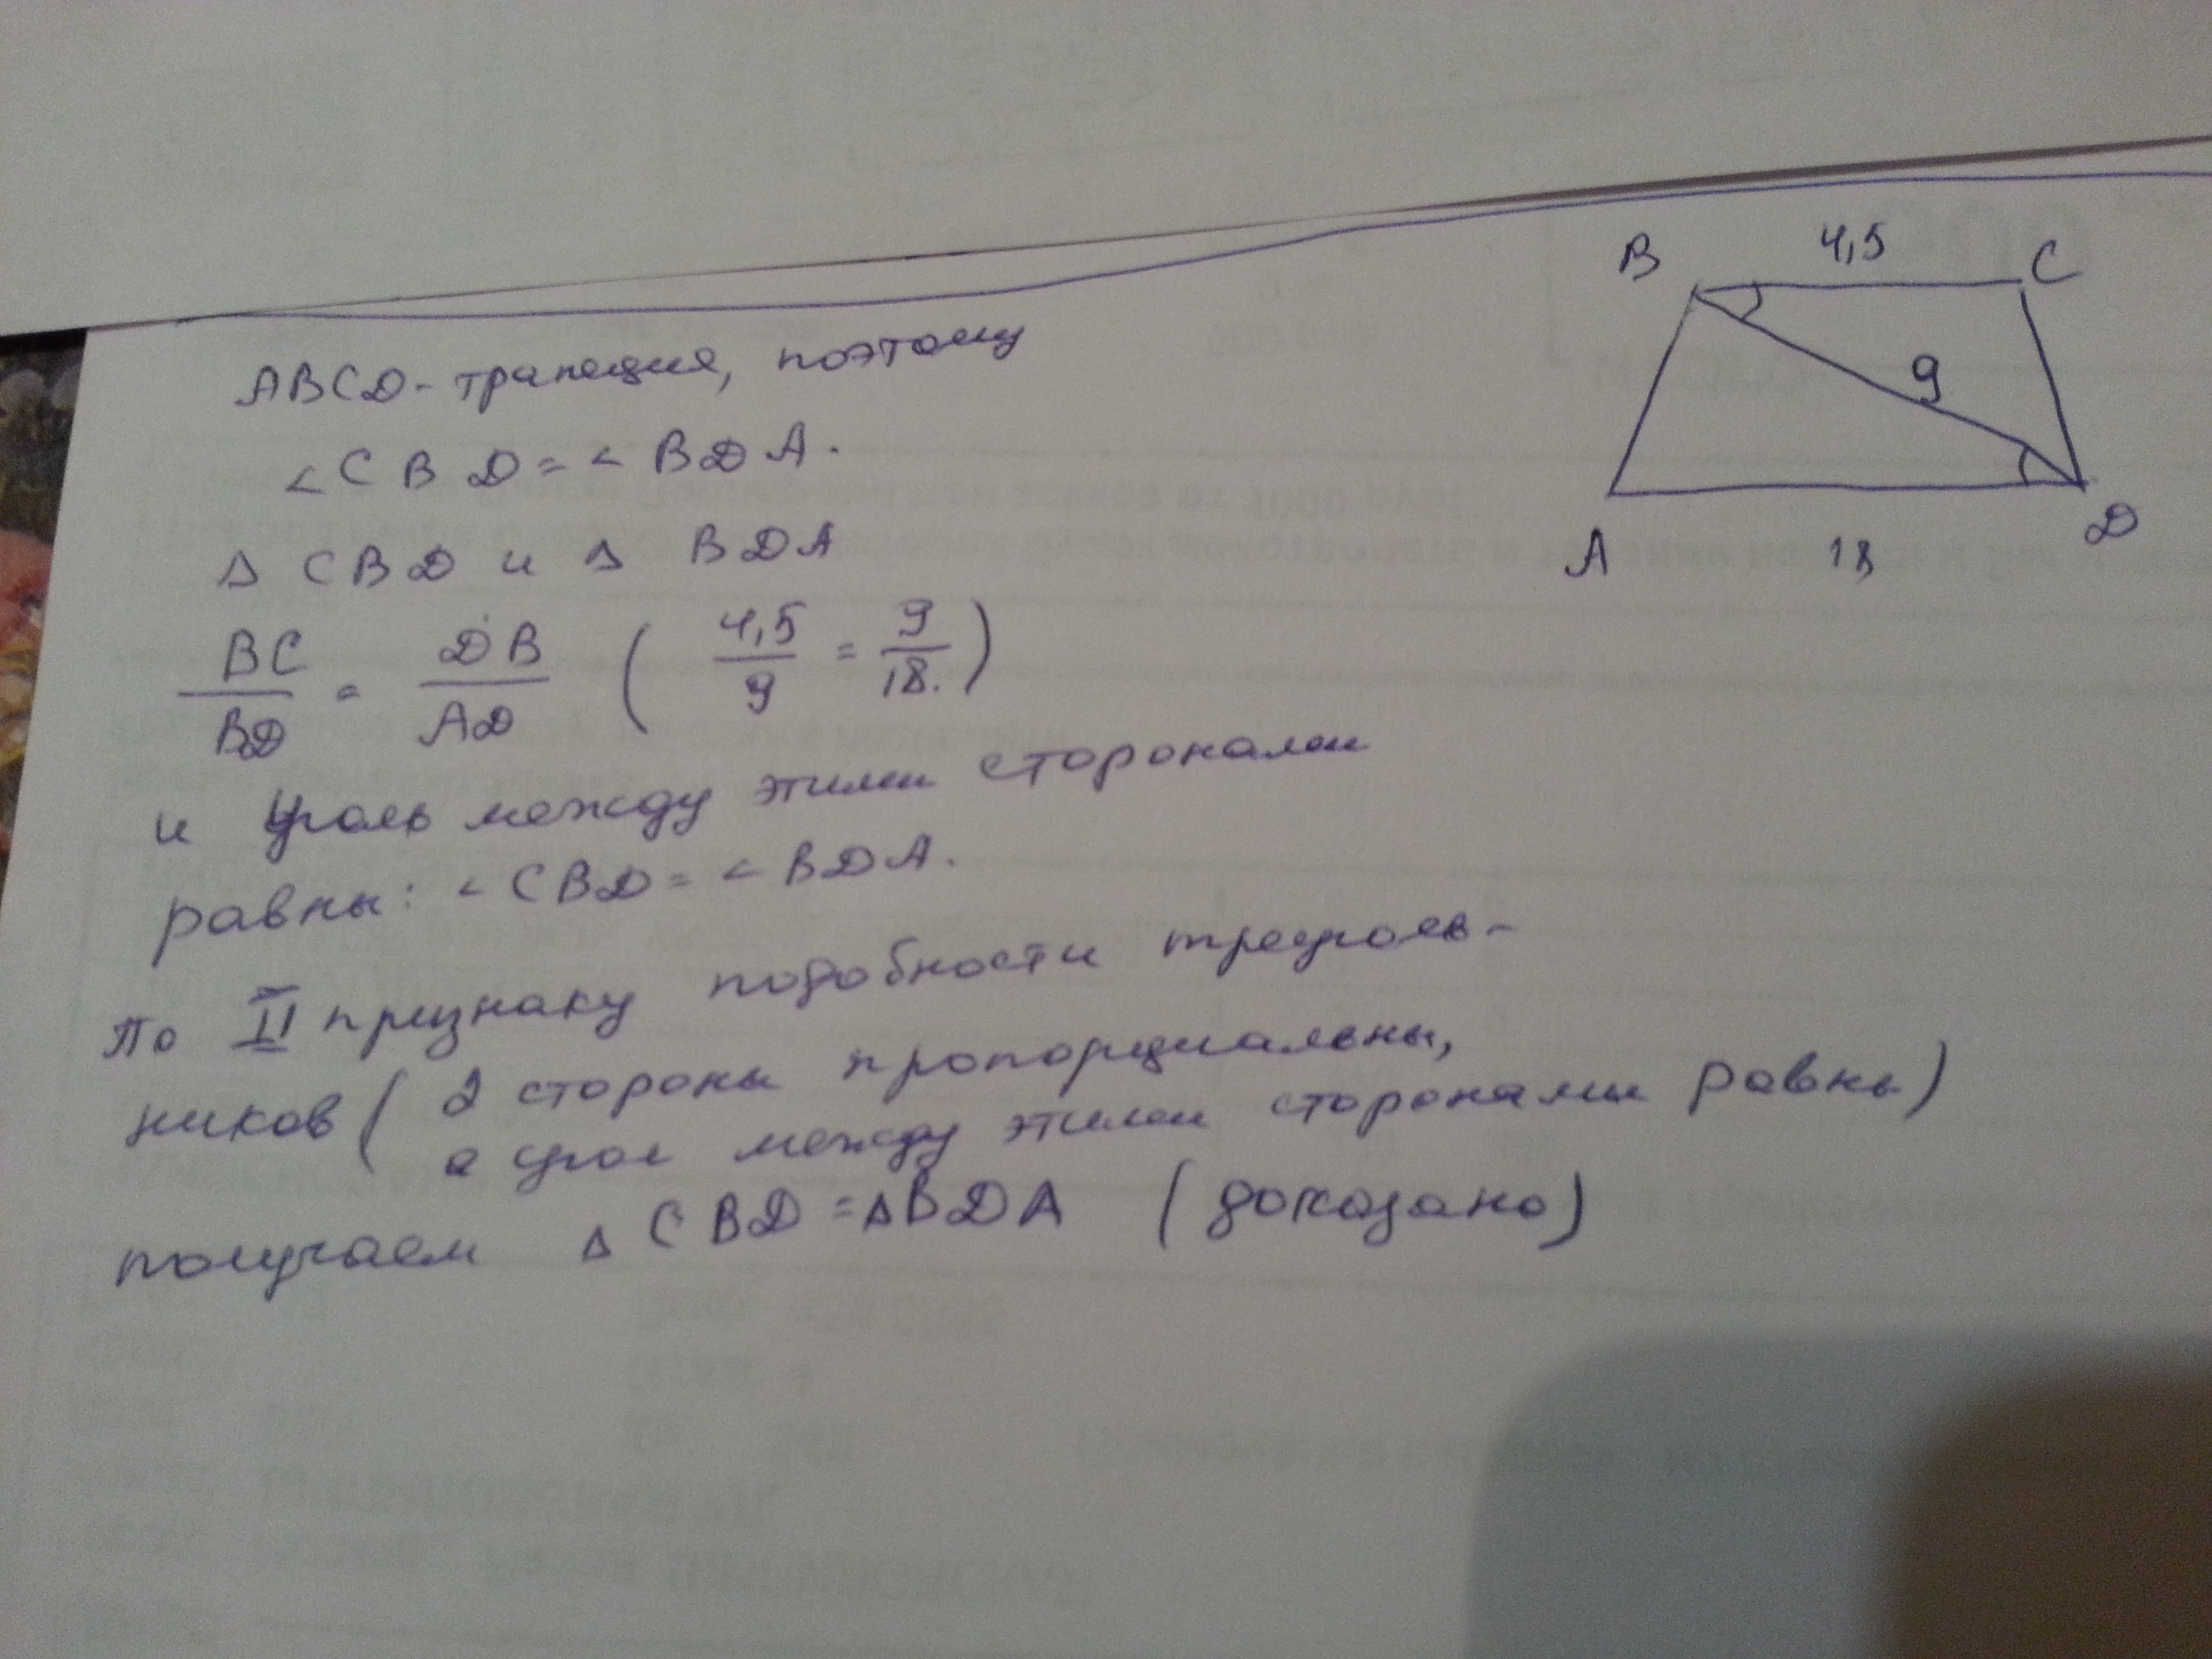 ABCD - трапеция, поэтому
∠CBD = ∠BDA.
Δ CBD и Δ BDA
BC/BD = DB/AD ( 4,5/9 = 9/18. )
и уголь между этими сторонами
равны: ∠CBD = ∠BDA.
По II признаку подобности треуголь-
ников ( 2 стороны пропорциальны,
а угол между этими сторонами равны)
получаем Δ CBD = Δ BDA (доказано)
B 4,5 C
9
A 18 D